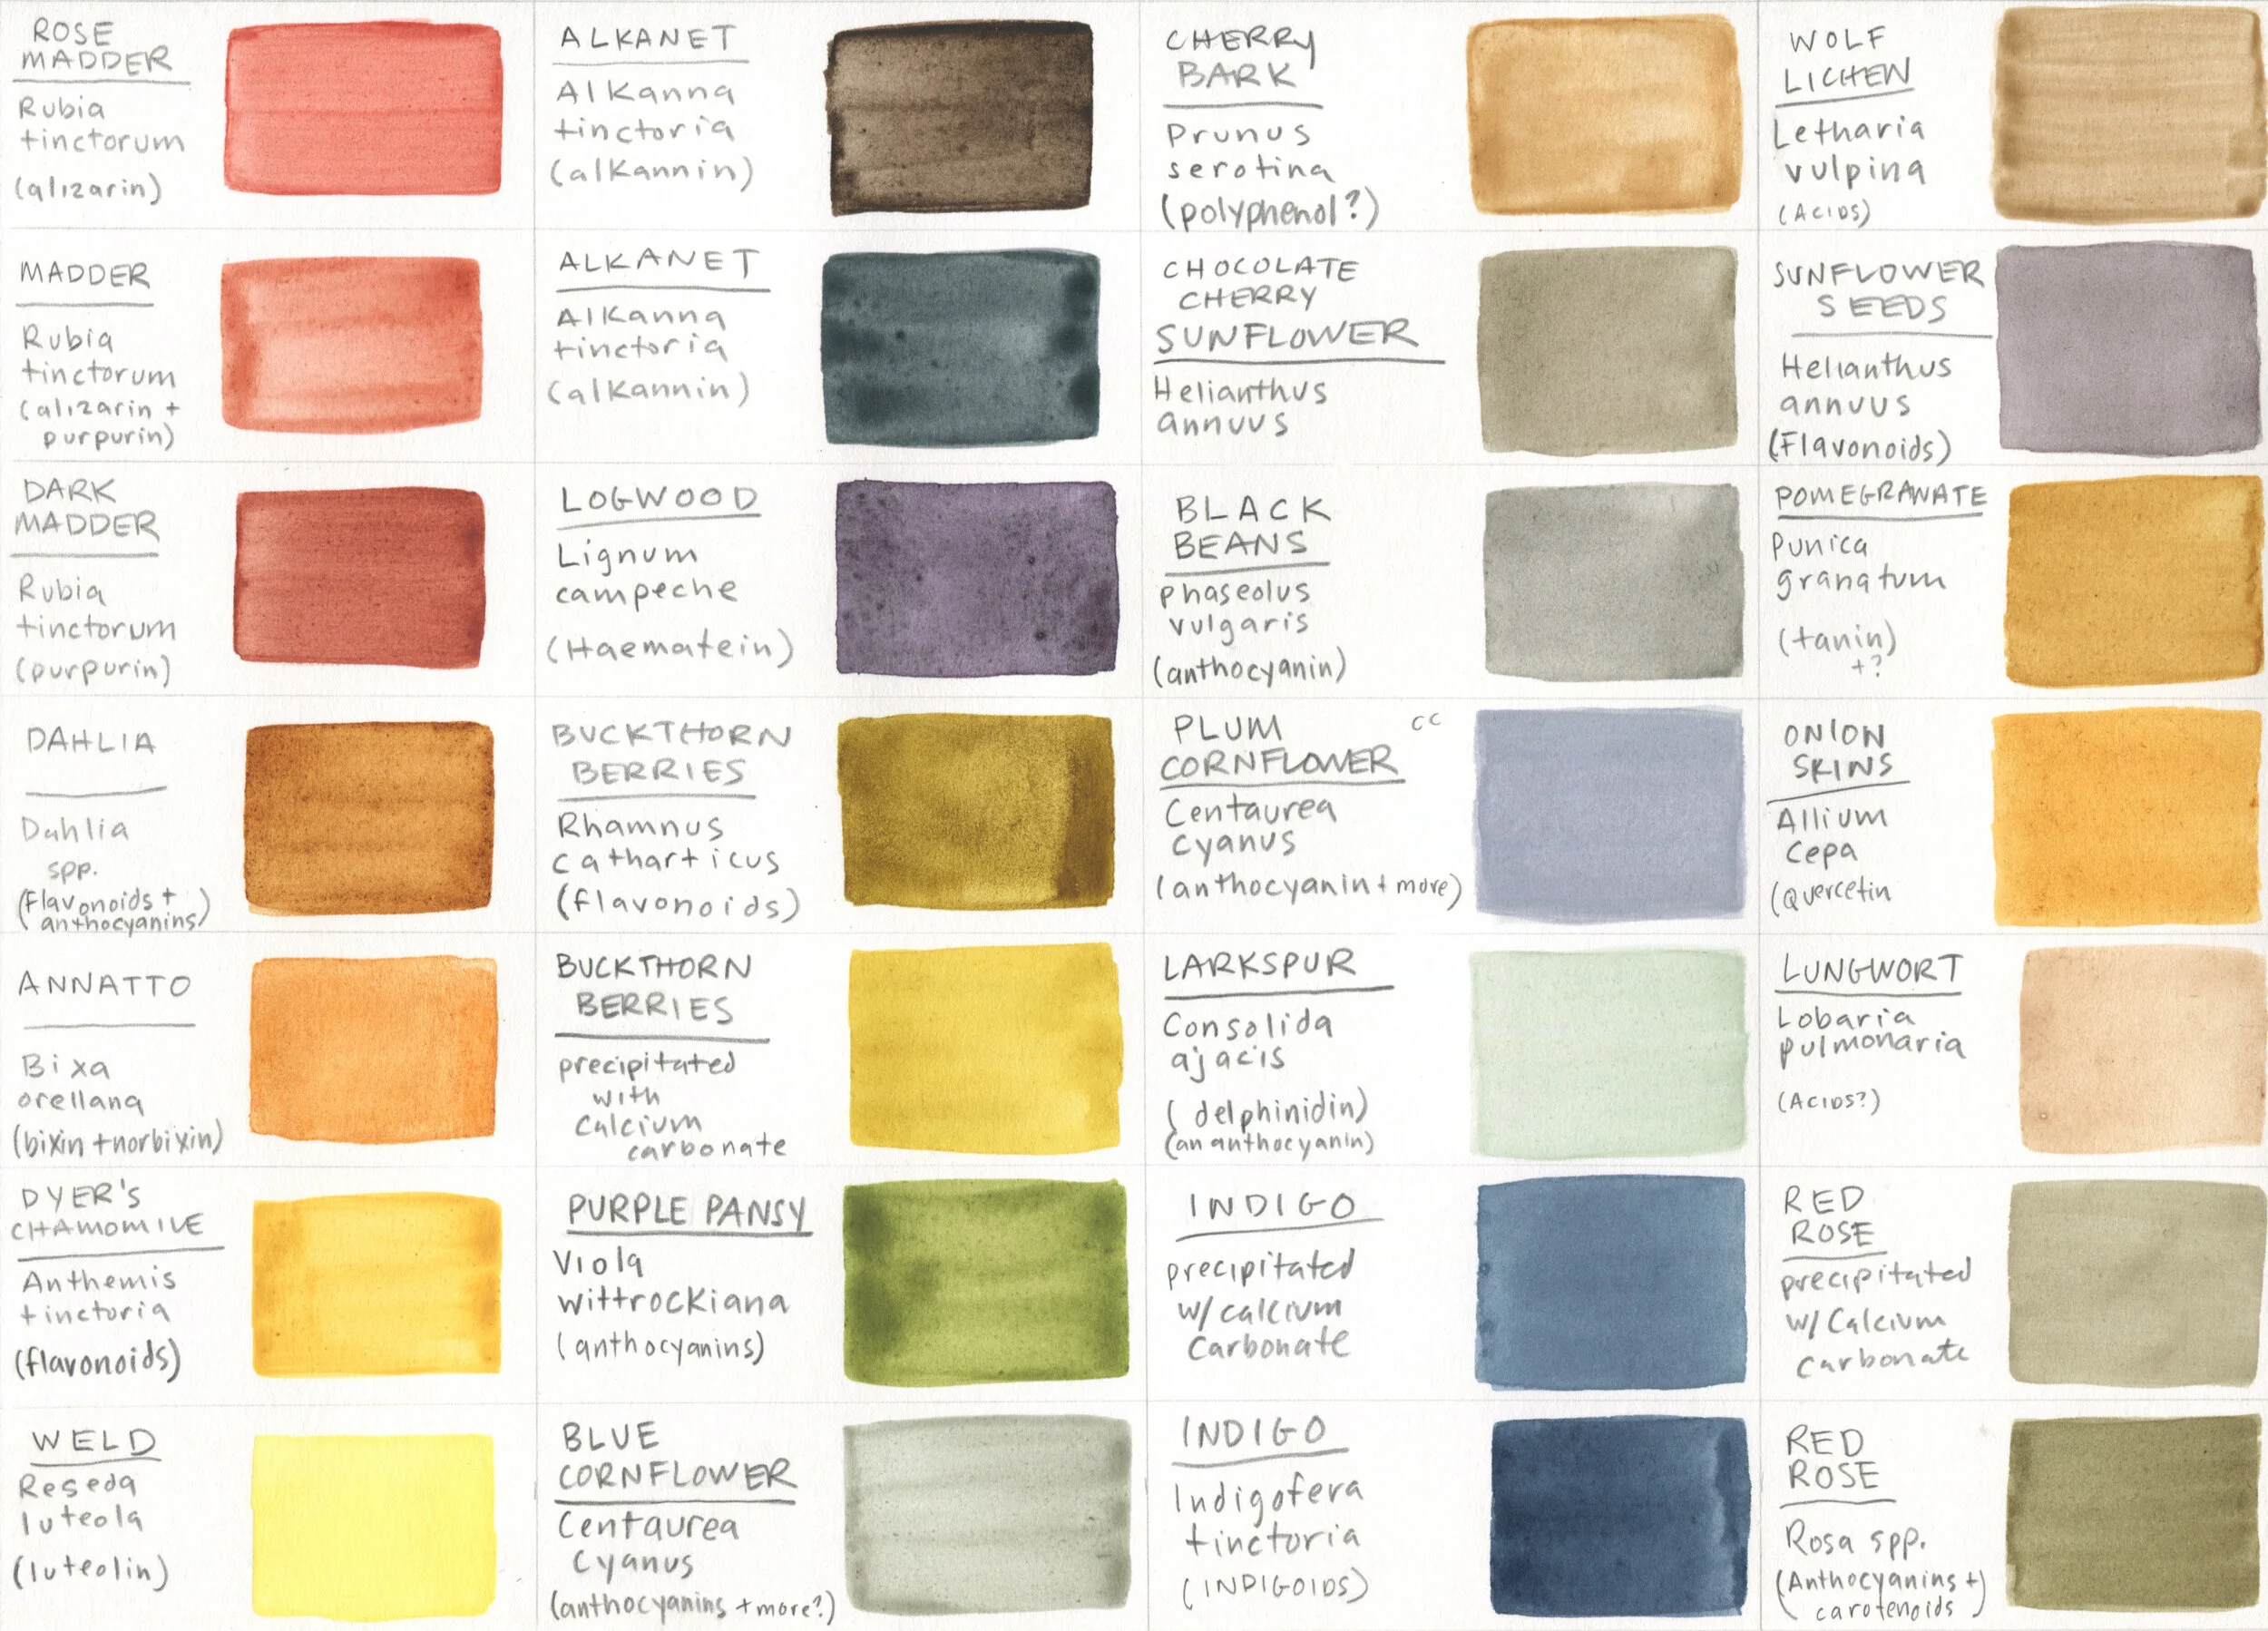 ROSE
MADDER
Rubia
tinctorum
(alizarin)
MADDER
Rubia
tinctorum
(alizarin +
purpurin)
DARK
MADDER
Rubia
tinctorum
(purpurin)
DAHLIA
Dahlia
spp.
(Flavonoids +
anthocyanins)
ANNATTO
Bixa
orellana
(bixin + norbixin)
DYER'S
CHAMOMILE
Anthemis
tinctoria
(flavonoids)
WELD
Reseda
luteola
(luteolin)
ALKANET
Alkanna
tinctoria
(alkannin)
ALKANET
Alkanna
tinctoria
(alkannin)
LOGWOOD
Lignum
campeche
(Haematein)
BUCKTHORN
BERRIES
Rhamnus
catharticus
(flavonoids)
BUCKTHORN
BERRIES
precipitated
with
calcium
carbonate
PURPLE PANSY
Viola
wittrockiana
(anthocyanins)
BLUE
CORNFLOWER
Centaurea
cyanus
(anthocyanins + more?)
CHERRY
BARK
Prunus
serotina
(polyphenol?)
CHOCOLATE
CHERRY
SUNFLOWER
Helianthus
annuus
BLACK
BEANS
phaseolus
vulgaris
(anthocyanin)
PLUM CC
CORNFLOWER
Centaurea
cyanus
(anthocyanin + more)
LARKSPUR
Consolida
ajacis
(delphinidin)
(an anthocyanin)
INDIGO
precipitated
w/ calcium
Carbonate
INDIGO
Indigofera
tinctoria
(INDIGOIDS)
WOLF
LICHEN
Letharia
vulpina
(ACIDS)
SUNFLOWER
SEEDS
Helianthus
annuus
(Flavonoids)
POMEGRANATE
Punica
granatum
(tanin)
+?
ONION
SKINS
Allium
cepa
(Quercetin
LUNGWORT
Lobaria
pulmonaria
(ACIDS?)
RED
ROSE
precipitated
w/ Calcium
carbonate
RED
ROSE
Rosa spp.
(Anthocyanins +)
(carotenoids)